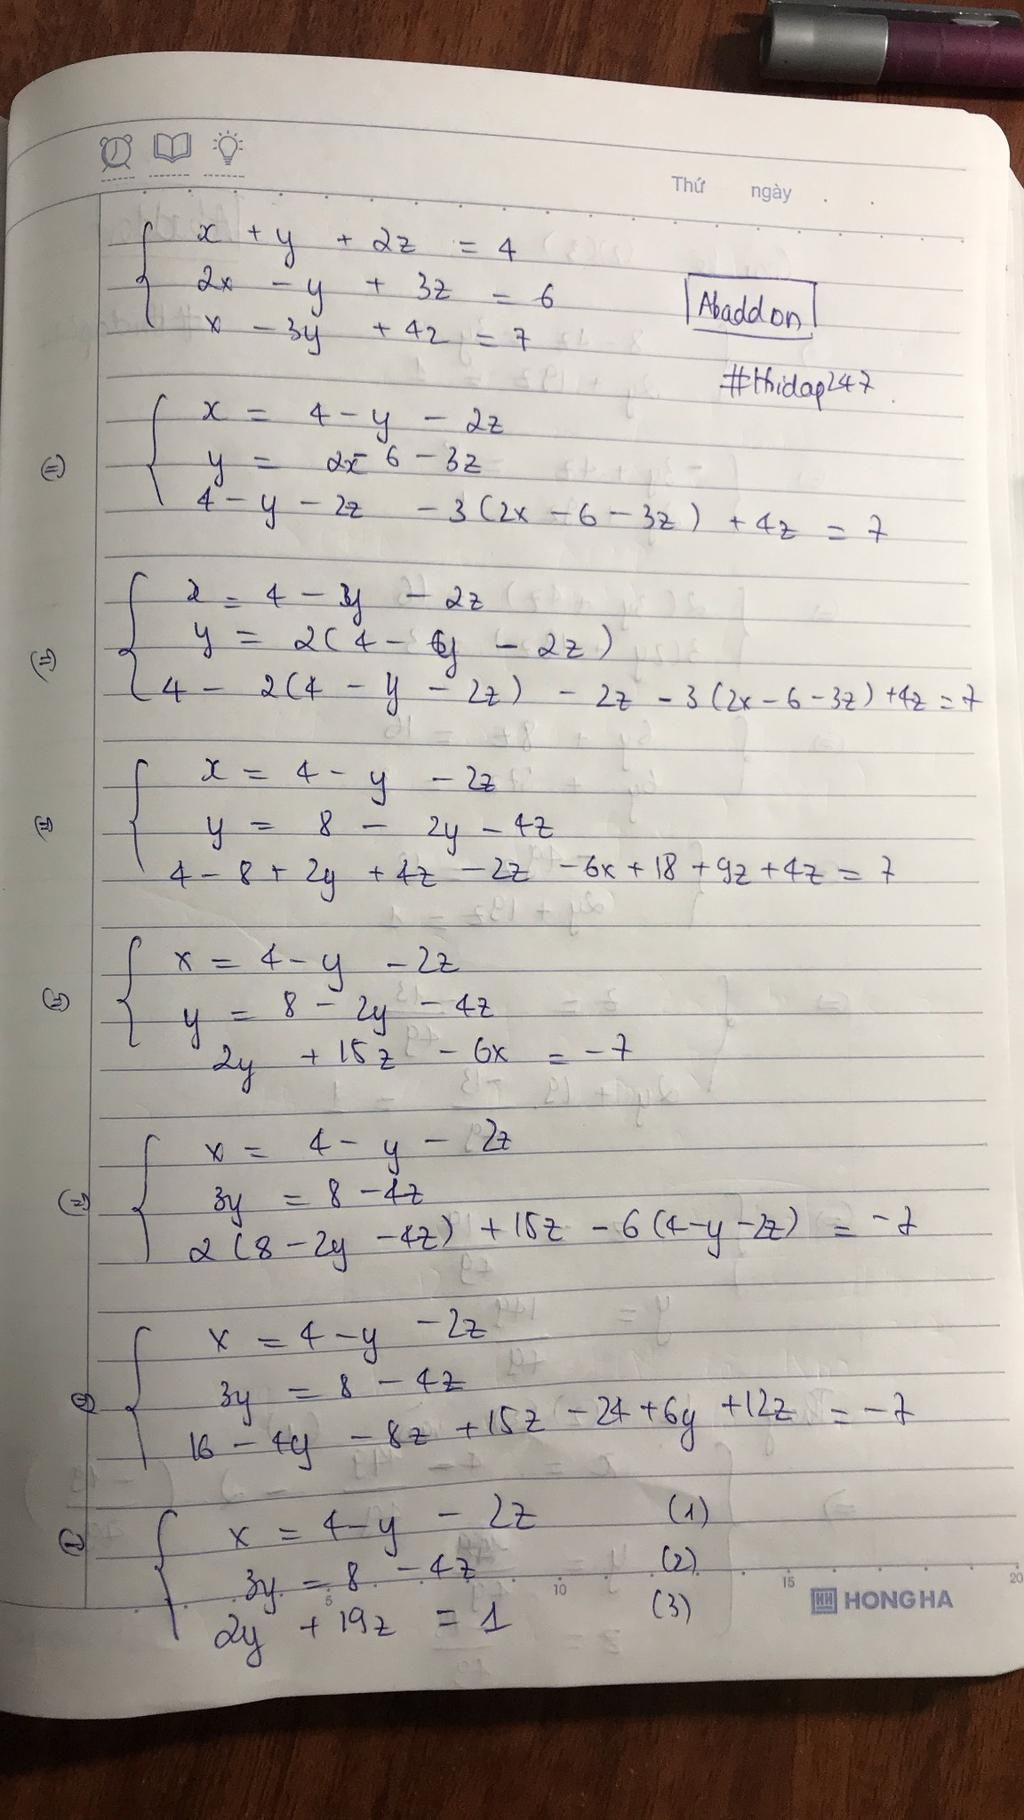 Thứ ngày . .
x + y + 2z = 4
2x - y + 3z = 6
x - 3y + 4z = 7
Abaddon
#thidap247
(=) x = 4 - y - 2z
y = 2x - 6 - 3z
4 - y - 2z - 3(2x - 6 - 3z) + 4z = 7
(=) x = 4 - y - 2z
y = 2(4 - y - 2z)
4 - 2(4 - y - 2z) - 2z - 3(2x - 6 - 3z) + 4z = 7
(=) x = 4 - y - 2z
y = 8 - 2y - 4z
4 - 8 + 2y + 4z - 2z - 6x + 18 + 9z + 4z = 7
(=) x = 4 - y - 2z
y = 8 - 2y - 4z
2y + 15z - 6x = -7
(=) x = 4 - y - 2z
3y = 8 - 4z
2(8 - 2y - 4z) + 15z - 6(4 - y - 2z) = -7
(=) x = 4 - y - 2z
3y = 8 - 4z
16 - 4y - 8z + 15z - 24 + 6y + 12z = -7
(=) x = 4 - y - 2z (1)
3y = 8 - 4z (2)
2y + 19z = 1 (3)
5 10 15 20
HH HONG HA